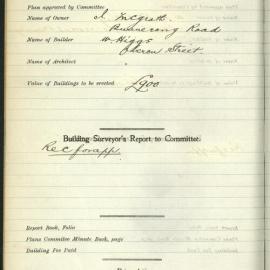 Plan approved by Committee
Name of Owner J. McGrath
Bunnerong Road
Name of Builder W Higgs
Oberon Street.
Name of Architect
Value of Buildings to be erected £900
Building Surveyor's Report to Committee.
Rec for app.
Report Book, Folio
Plans Committee Minute Book, page
Building Fee Paid